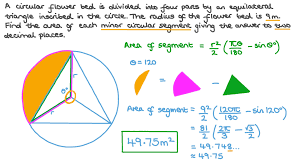 A circular flower bed is divided into four parts by an equilateral
triangle inscribed in the circle. The radius of the flower bed is 9m.
Find the area of each minor circular segment giving the answer to two
decimal places.
Area of segment = r²/2 (πθ/180 - sinθ°)
θ = 120
r
r
θ°
-
=
Area of segment = 9²/2 (120π/180 - sin120°)
= 81/2 (2π/3 - √3/2)
= 49.748...
= 49.75
49.75m²